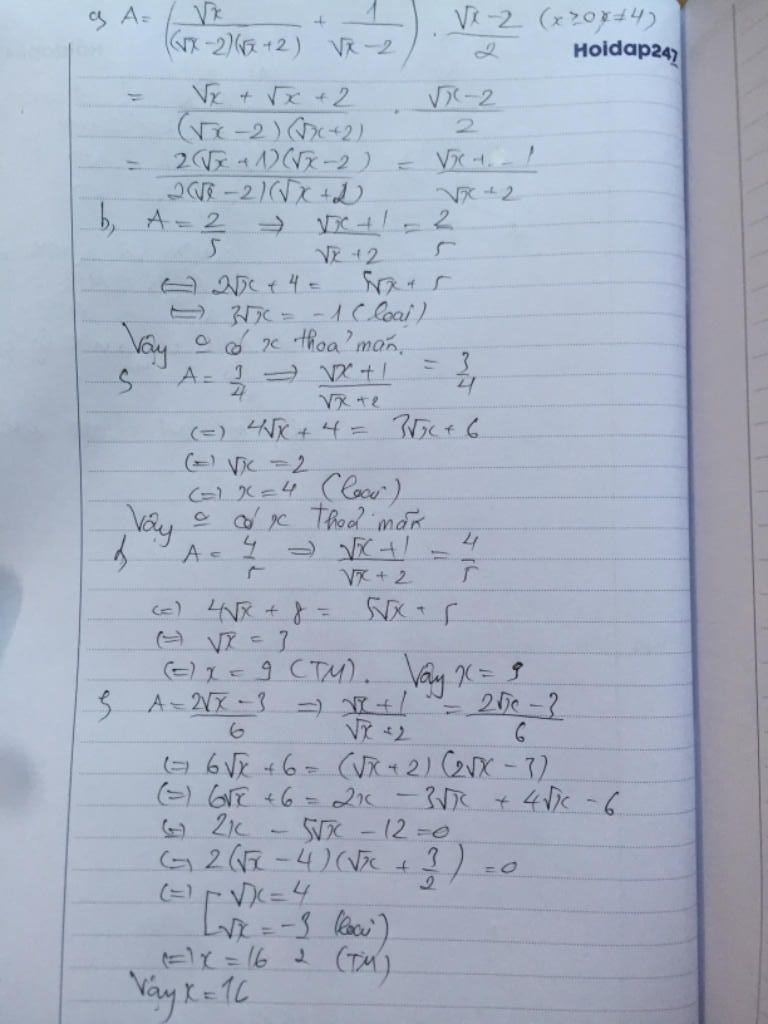 a, A = (√x / ((√x-2)(√x+2)) + 1 / (√x-2)) . (√x-2) / 2 (x≥0, x≠4)
Hoidap247
= (√x + √x + 2) / ((√x-2)(√x+2)) . (√x-2) / 2
= 2(√x+1)(√x-2) / 2(√x-2)(√x+2) = (√x+1) / (√x+2)
b, A = 2/5 => (√x+1) / (√x+2) = 2/5
<=> 2√x + 4 = 5√x + 5
<=> 3√x = -1 (loại)
Vậy ko có x thoả mãn.
c, A = 3/4 => (√x+1) / (√x+2) = 3/4
<=> 4√x + 4 = 3√x + 6
<=> √x = 2
<=> x = 4 (loại)
Vậy ko có x thoả mãn
d, A = 4/5 => (√x+1) / (√x+2) = 4/5
<=> 4√x + 8 = 5√x + 5
<=> √x = 3
<=> x = 9 (TM). Vậy x = 9
A = (2√x-3) / 6 => (√x+1) / (√x+2) = (2√x-3) / 6
<=> 6√x + 6 = (√x+2)(2√x-3)
<=> 6√x + 6 = 2x - 3√x + 4√x - 6
<=> 2x - 5√x - 12 = 0
<=> 2(√x-4)(√x + 3/2) = 0
<=> [ √x = 4
√x = -3/2 (loại)
<=> x = 16 (TM)
Vậy x = 16